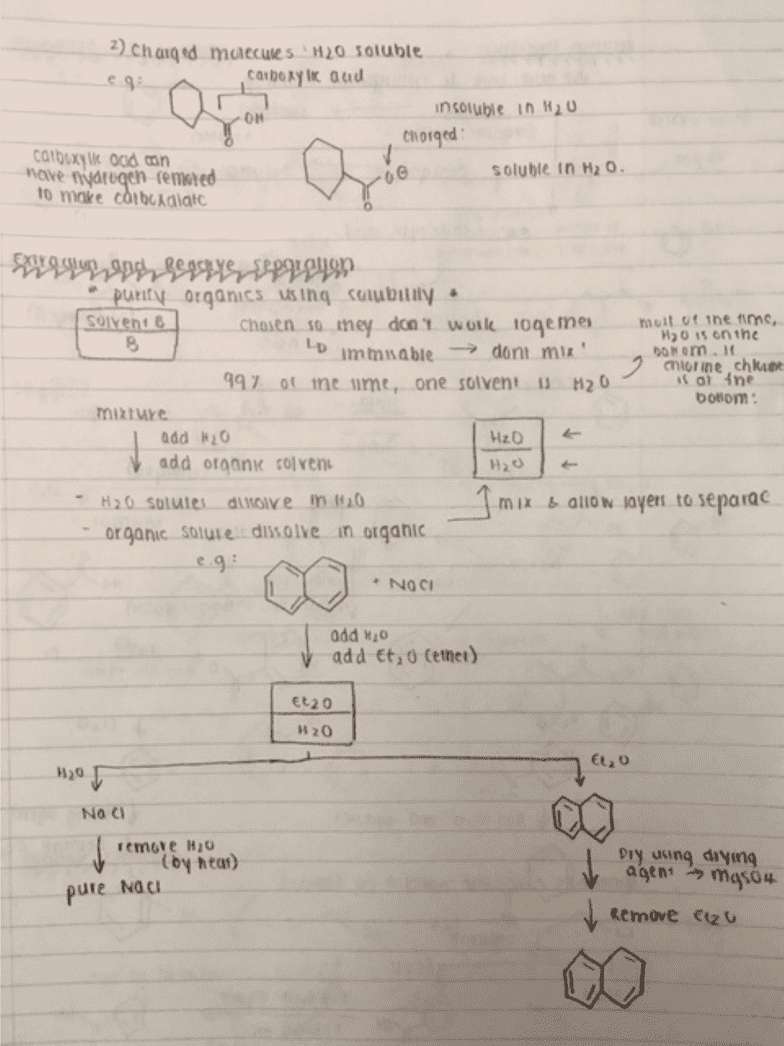 2) Charged molecules: H2O soluble
e.g:
carboxylic acid
OH
O
insoluble in H2O
charged:
O⊖
O
soluble in H2O.
carboxylic acid can
have hydrogen removed
to make carboxalate
Extraction and Reactive separation
* purify organics using solubility *
Solvent B
B
chosen so they don't work together
↳ immisable → dont mix!
99% of the time, one solvent is H2O
most of the time,
H2O is on the
bottom. If
chlorine, chlorine
is at the
bottom:
mixture
add H2O
add organic solvent
H2O ←
H2O ←
- H2O solutes dissolve in H2O
- organic solute dissolve in organic
mix & allow layers to separac
e.g:
+ NaCl
add H2O
add Et2O (ether)
Et2O
H2O
H2O
Et2O
NaCl
remove H2O
(by heat)
pure NaCl
Dry using drying
agent → MgSO4
Remove Et2O